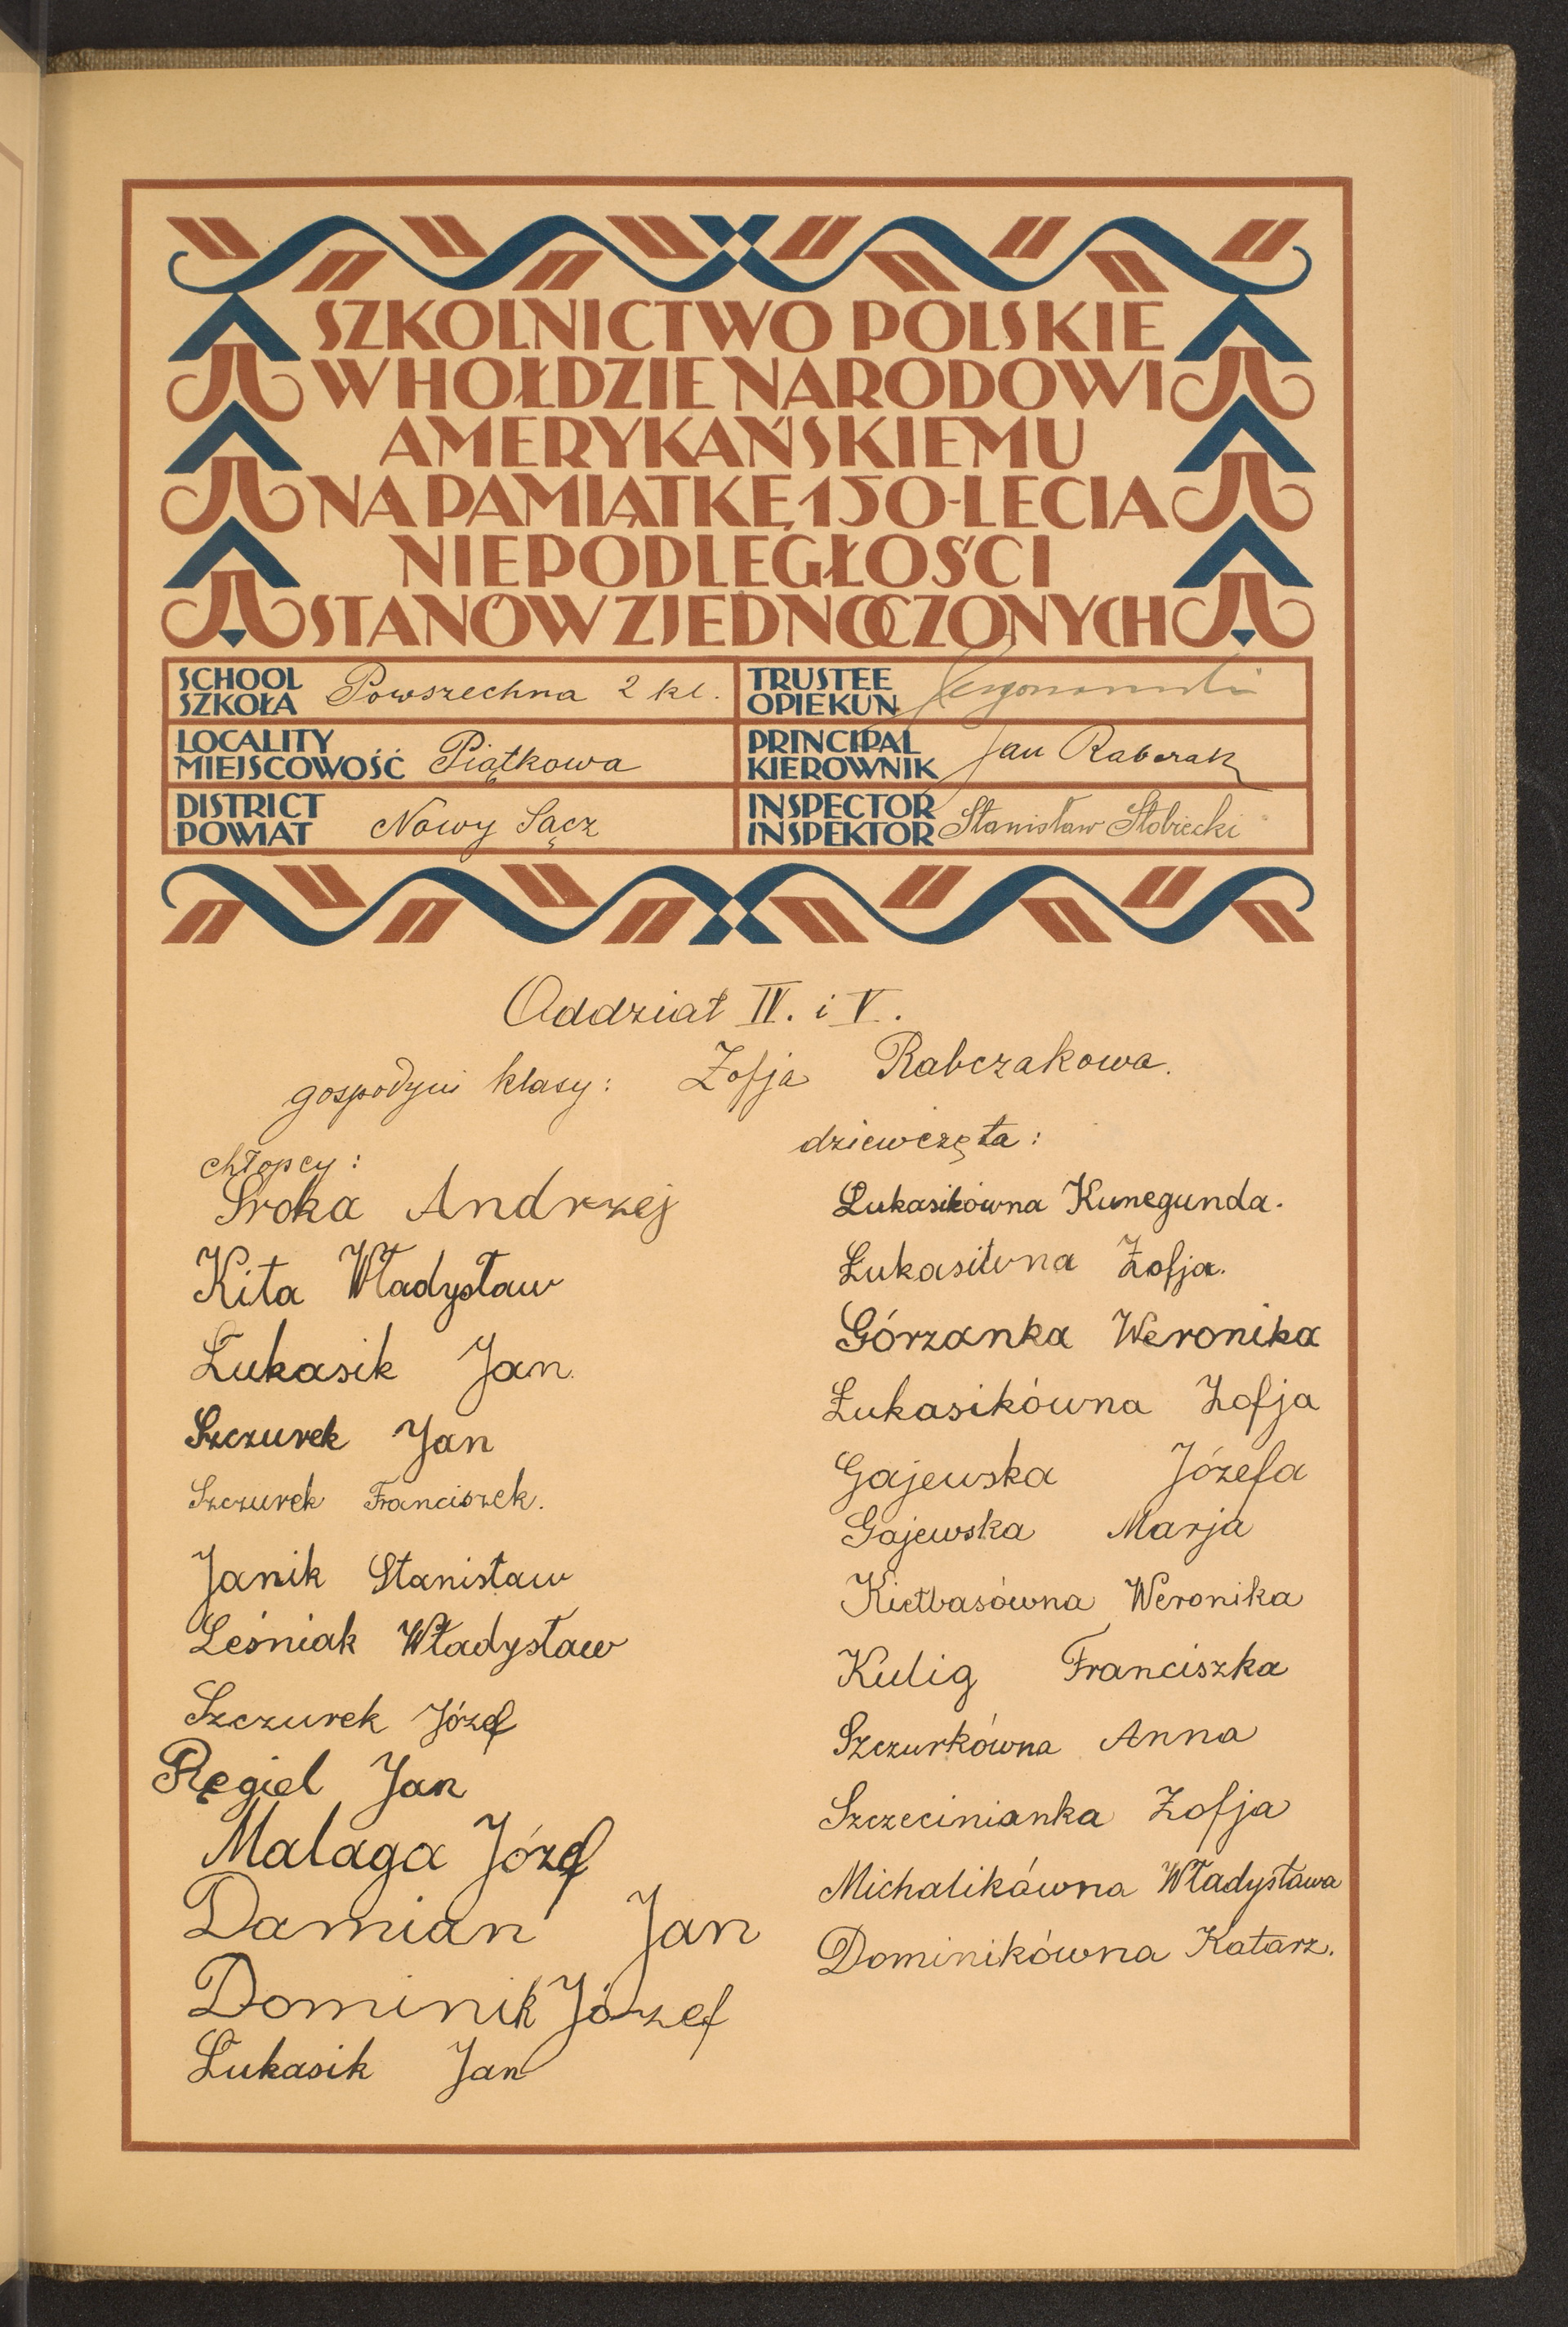 SZKOLNICTWO POLSKIE
W HOŁDZIE NARODOWI
AMERYKAŃSKIEMU
NA PAMIĄTKĘ 150-LECIA
NIEPODLEGŁOŚCI
STANÓW ZJEDNOCZONYCH
SCHOOL
SZKOŁA Powszechna 2 kl.
TRUSTEE
OPIEKUN
LOCALITY
MIEJSCOWOŚĆ Piątkowa
PRINCIPAL
KIEROWNIK Jan Rabczak
DISTRICT
POWIAT Nowy Sącz
INSPECTOR
INSPEKTOR Stanisław Słobiecki
Oddział IV. i V.
gospodyni klasy: Zofja Rabczakowa.
chłopcy:
Sroka Andrzej
Kita Władysław
Łukasik Jan.
Szczurek Jan
Szczurek Franciszek.
Janik Stanisław
Leśniak Władysław
Szczurek Józef
Ręgiel Jan
Malaga Józef
Damian Jan
Dominik Józef
Łukasik Jan
dziewczęta:
Łukasikówna Kunegunda.
Zofja.
Górzanka Weronika
Łukasikówna Zofja
Gajewska Józefa
Gajewska Marja
Kiełbasówna Weronika
Kulig Franciszka
Szczurkówna Anna
Szczecinianka Zofja
Michalikówna Władysława
Dominikówna Katarz.